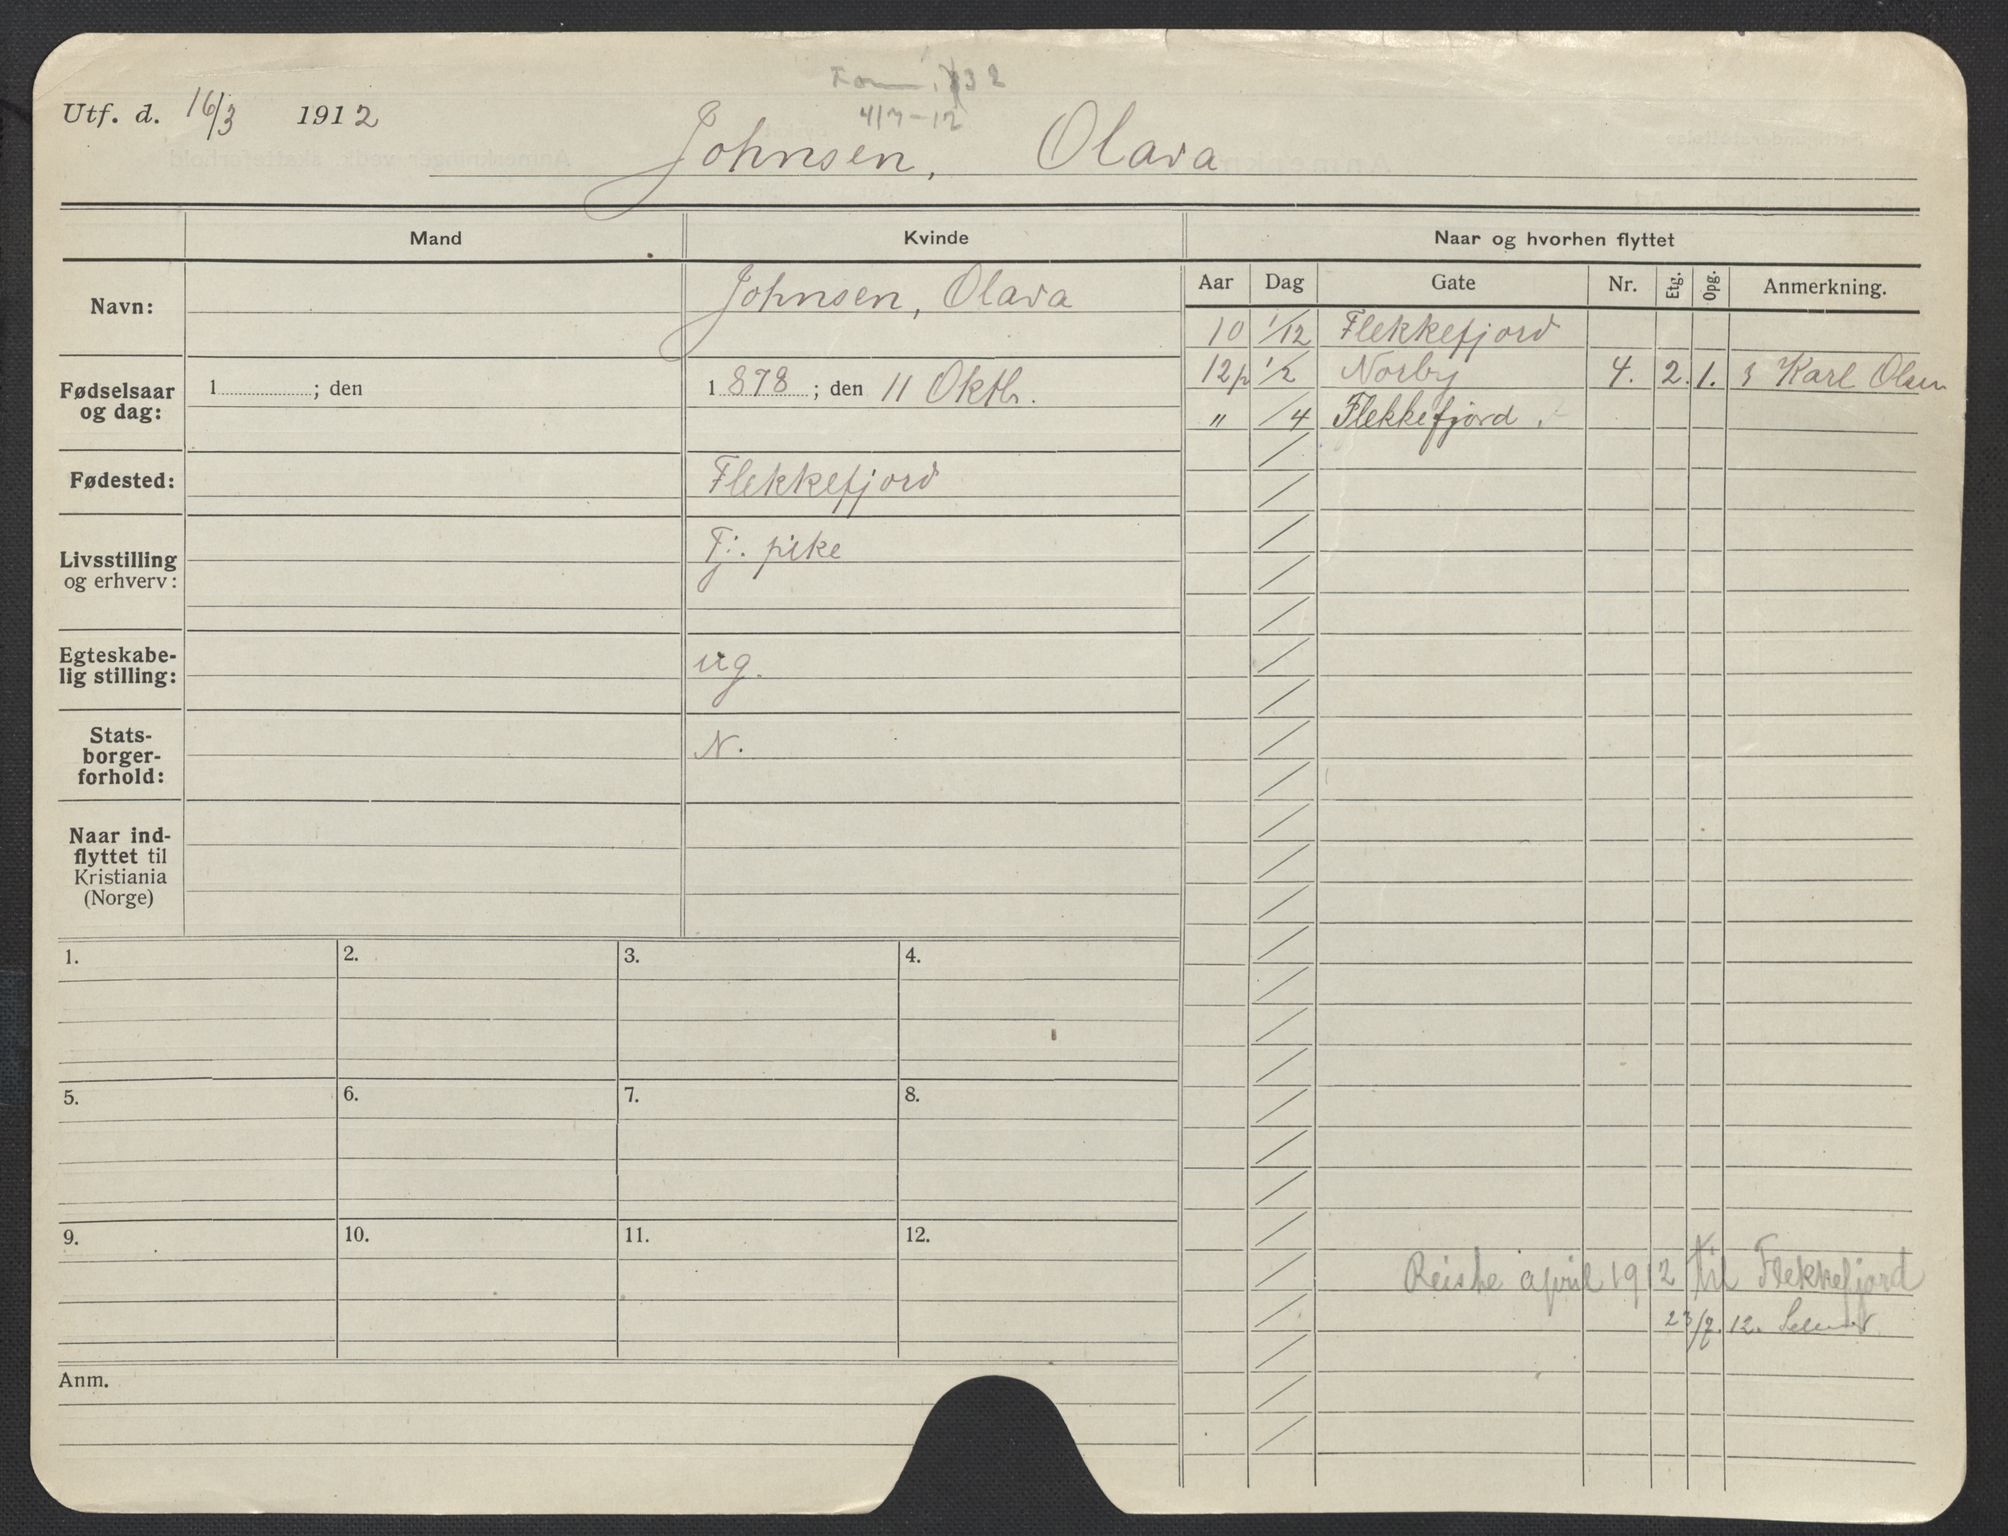 Utf. d. 16/3 1912
4/7-12
Johnsen, Olava
Mand
Kvinde
Naar og hvorhen flyttet
Aar Dag Gate Nr. Etg. Opg. Anmerkning.
Navn: Johnsen, Olava
10 1/12 Flekkefjord
12p 1/2 Norby 4. 2. 1. Karl Olsen
" /4 Flekkefjord.
Fødselsaar
og dag:
1 ; den
1 878 ; den 11 Oktb.
Fødested: Flekkefjord
Livsstilling
og erhverv:
Tj. pike
Egteskabe-
lig stilling:
ug.
Stats-
borger-
forhold:
N.
Naar ind-
flyttet til
Kristiania
(Norge)
1. 2. 3. 4.
5. 6. 7. 8.
9. 10. 11. 12.
Reiste april 1912 til Flekkefjord
23/7. 12.
Anm.